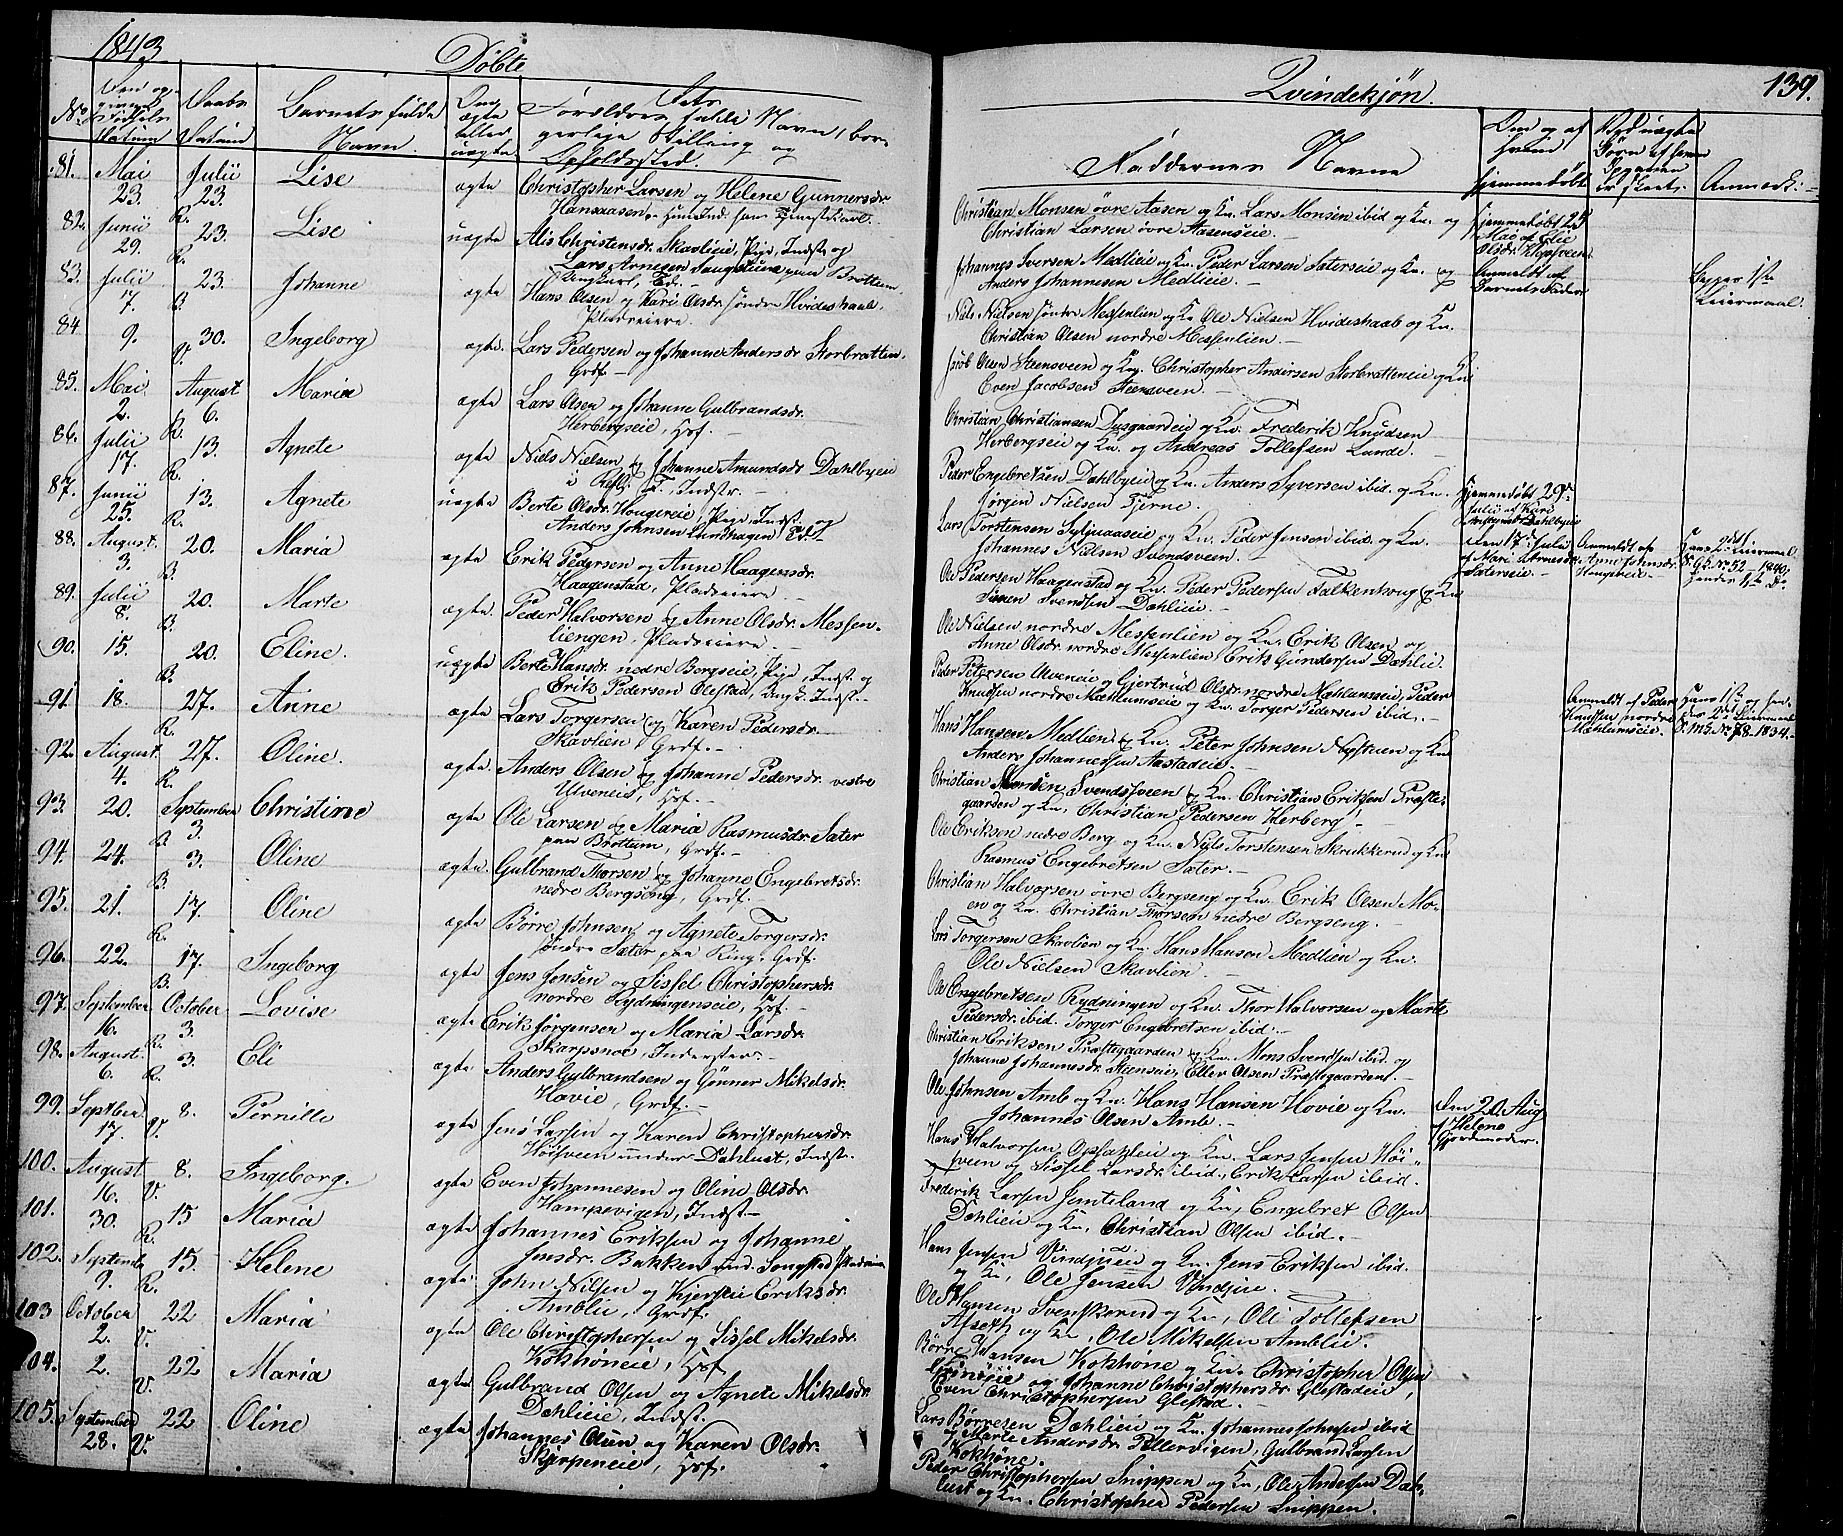 1843 Döbte Qvindekjön. 139.
No. Den Födsels Datum Daabs Datum Barnets fulde Navn. ægte eller uægte Forældres fulde Navn, Stilling og Opholdssted. Faddernes Navne Om og af hvem hjemmedöbt Anmærk:
81. Mai 23. Julii 23. R. Lise ægte Christopher Larsen og Helene Gunnersdr.
Christian Monsen övre Aasen og Kn. Lars Monsen ibid og Kn. og
Christian Larsen övre Aasenseie. Hjemmedöbt 25 Mai af Eli
82. Junii 29. R. 23. Lise uægte Alis Christensdr. Skavlieie, Pige, Indst. og
Johannes Iversen Medlieie og Kn. Peder Larsen Sæterseie og Kn. og
Anders Johannesen Medlieie. Anmeldt af Barnets Fader Begges 1ste Leiermaal.
83. Julii 17. B. 23. Johanne ægte Hans Olsen og Kari Olsdr. söndre Hvideshaab.
Pladseiere.
Nils Nielsen söndre Messenlien og Kn. Ole Nielsen Hvideshaab og Kn.
Christian Olsen nordre Messenlien.
84. 9. V. 30. Ingeborg ægte. Lars Pedersen og Johanne Andersdr Storbratten.
Grdf.
Jacob Olsen Steensveen og Kn. Christopher Andersen Storbratteneie og Kn.
Even Jacobsen Steensveen.
85. Mai 2. R. August 6. Maria ægte Lars Olsen og Johanne Gulbrandsdr.
Herbergseie, Hsf.
Christian Christiansen Dusgaardeie og Kn. Frederik Knudsen
Herbergseie og Kn. og Andreas Tollefsen Lunde.
86. Julii 17. R. 13. Agnete ægte Niels Nielsen og Johanne Amundsdr Dahlbyeie
Indstr.
Peder Engebretsen Dahlbyeie og Kn. Anders Syversen ibid. og Kn.
Jörgen Nielsen Tjerne. Hjemmedöbt 29de Julii af Kari
87. Junii 25. R. 13. Agnete uægte Berte Olsdr. Hougereie, Pige, Indst. og
Anders Johnsen Lundhagen
Lars Torstensen Syljuaaseie og Kn. Peder Jensen ibid. og Kn.
Johannes Nielsen Svendsveen. den 17de Julii af Mari Arnesdr Sætereie. Anmeldt af Anne Johnsdr.
88. August 3. B. 20. Maria ægte Erik Pedersen og Anne Haagensdr.
Haagenstad, Pladseiere.
Ole Pedersen Haagenstad og Kn. Peder Pedersen Falkenhoug og Kn.
Simen Svendsen Dahlieie.
89. Julii 8. B. 20. Marte ægte. Peder Halvorsen og Anne Olsdr. Messen-
liengen, Pladseiere.
Ole Nielsen nordre Messenlien og Kn. Erik Olsen og
Anne Olsdr. nordre Messenlien, Erik Gundersen Dæhlie.
90. 15. B. 20. Eline. uægte Berte Hansdr. nedre Bergseie, Pige, Indst. og
Erik Pedersen Olestad, Ungk. Indst.
Peder Petersen Ulveneie og Gjertrud Olsdr. nordre Mæhlumseie, Peder
Knudsen nordre Mæhlumseie og Kn. Torger Pedersen ibid. Anmeldt af Peder Knudsen nordre Mæhlumseie.
91. 18. R. 27. Anne ægte Lars Torgersen og Karen Pedersdr.
Skavlien, Grdf.
Hans Hansen Medlien og Kn. Peter Johnsen og Kn
Anders Johannessen Aastadeie.
92. August 4. R. 27. Oline. ægte. Anders Olsen og Johanne Pedersdr. vestre
Ulveneie, Hsf.
Christian Svendsveen og Kn. Christian Eriksen Præste-
gaarden og Kn, Christian Pedersen Herberg
93. 20. B. September 3. Christine ægte Ole Larsen og Maria Rasmusdr. Sæter
paa Brottum, Grdf.
Ole Eriksen nedre Berg og Kn. Niels Torstensen Skrukkerud og Kn
Rasmus Engebretsen Sæter.
94. 24. B. 3. Oline ægte. Gulbrand Thorsen og Johanne Engebretsdr.
nedre Bergseng, Grdf.
Christian Halvorsen övre Bergseng og Kn. Erik Olsen Mo-
en og Kn. Christian Thorsen nedre Bergseng.
95. 21. R. 17. Oline ægte Börre Johnsen og Agnete Torgersdr.
söndre Sæter paa Ring. Grdf.
Lars Torgersen Skavlien og Kn. Hans Hansen Medlien og Kn.
Ole Nielsen Skavlien.
96. 22. B. 17. Ingeborg ægte Jens Jensen og Sissel Christophersdr.
nordre Rydningenseie, Hsf.
Ole Engebretsen Rydningen og Kn. Thor Halvorsen og Marte
Pedersdr. ibid. Torger Engebretsen ibid.
97. September 16. R. October 3. Lovise ægte Erik Jörgensen og Maria Larsdr.
Skarpsnoe, Inderster.
Christian Eriksen Præstegaarden og Kn. Mons Svendsen ibid. og
Johanne Johannesdr. Steenseie, Eller Olsen Præstegaarden.
98. August 6. R. 3. Eli ægte Anders Gulbrandsen og Gönner Mikelsdr.
Hovie, Grdf.
Ole Johnsen Amb og Kn. Hans Hansen Hovie og Kn.
Johannes Olsen Amb. den 20. Aug af Helene Gjordemoder.
99. Septber 17. V. 8. Pernille ægte Jens Larsen og Karen Christophersdr.
Höisveen under Dahlust, Indst.
Hans Halvorsen og Kn. Lars Jensen Höi-
sveen og Sissel Larsdr. ibid., Erik Larsen ibid.
100. August 16. V. 8. Ingeborg. ægte Even Johannesen og Oline Olsdr.
Hampevigen, Indst.
Frederik Larsen Jemtland og Kn, Engebret Olsen
Dæhlieie og Kn, Christian Olsen ibid.
101. 30. R. 15 Maria ægte Johannes Eriksen og Johanne
Jensdr. Bakken und. Songstad
Hans Jensen Vindjueie og Kn. Jens Eriksen ibid.
og Kn, Ole Jensen Vindjue.
102. Septembr 9. R. 15. Helene ægte John Nilsen og Kjersti Eriksdr.
Amblie, Grdf.
Ole Hansen Svenskerud og Kn, Ole Tollefsen
og Kn, Ole Mikelsen Amblie.
103 October 2. V. 22 Maria ægte Ole Christophersen og Sissel Mikelsdr.
Kokhöneie, Hsf
Börre Hansen Kokhöne og Kn. Christopher Olsen
og Johanne Christophersdr. Glestadeie,
Even Christophersen Glestad.
104. 2. V. 22 Maria ægte Gulbrand Olsen og Agnete Mikelsdr.
Dæhlieie, Indst.
Lars Börresen Dæhlieie og Kn. Johannes Johnsen ibid
og Marte Andersdr. Pellervigen, Gulbrand Larsen
Kokhöne.
105. September 28. V. 22 Oline ægte Johannes Olsen og Karen Olsdr.
Skjerpeneie, Hsf.
Peder Christophersen Snippen og Kn, Ole Andersen Dah-
lust og Kn. Christopher Pedersen Snippen.